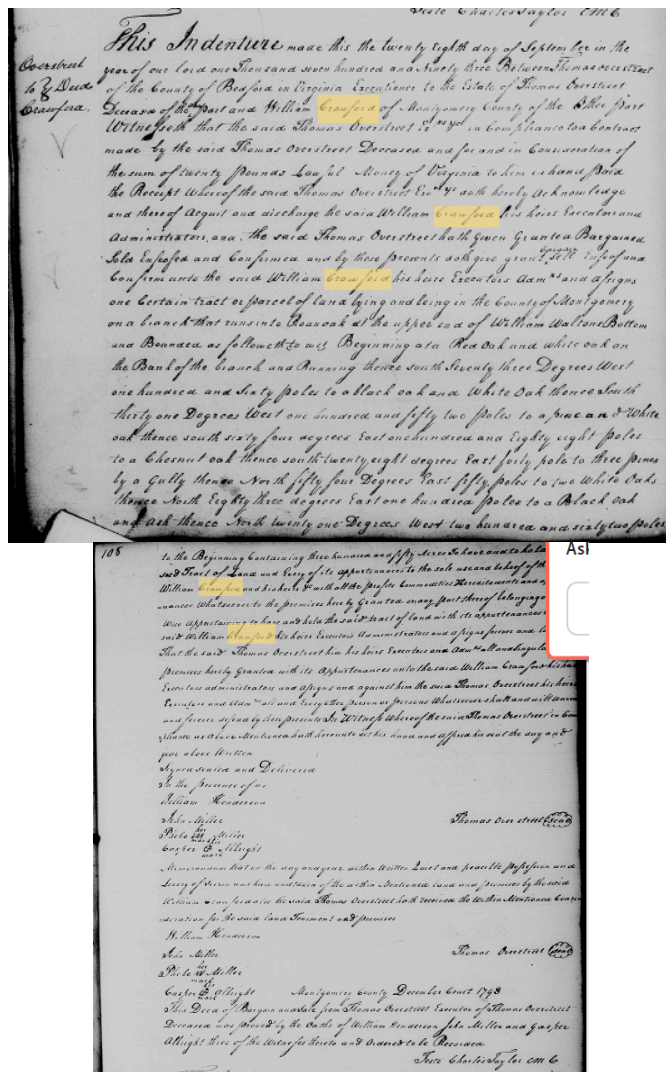 Teste Charles Taylor CMC
This Indenture made this the twenty Eighth day of September in the
Overstreet
to } Deed
Crawford
year of our lord one Thousand seven hundred and Ninety three Between Thomas overstreet
of the County of Bedford in Virginia Executioner to the Estate of Thomas Overstreet
Decead of the one part and William Crawford of Montgomery County of the Other part
Witnesseth that the said Thomas Overstreet in Complyance to a Contract
made by the said Thomas Overstreet Deceased and for and in Consideration of
the sum of twenty Pounds Lawful Money of Virginia to him in hand Paid
the Receipt Whereof the said Thomas Overstreet doth hereby Acknowledge
and thereof Acquit and discharge the said William Crawford his heirs Executors and
Administrators, and the said Thomas Overstreet hath Given Granted Bargained
Sold Enfeofed and Confirmed and by these presents doth give grant Sell Enfeof and
Confirm unto the said William Crawford his heirs Executors Admrs and assigns
one Certain tract or parcel of land lying and being in the County of Montgomery
on a branch that runs into Roanoak at the upper end of William Waltons Bottom
and Bounded as followeth to wit Beginning at a Red Oak and White oak on
the Bank of the branch and Running thence south Seventy three Degrees West
one hundred and Sixty poles to a black oak and White Oak thence South
thirty one Degrees West one hundred and fifty two Poles to a pine and White
oak thence south sixty four degrees East one hundred and Eighty eight poles
to a Chesnut oak thence south twenty eight degrees East forty pole to three pines
by a Gully thence North fifty four Degrees East fifty poles to two White Oaks
thence North Eighty three degrees East one hundred poles to a Black oak
and ash thence North twenty one Degrees West two hundred and sixty two poles
108
to the Beginning Containing three hundred and fifty Acres To have and to hold
said Tract of Land and Every of its appurtenances to the sole use and behoof of the
William Crawford and his heirs with all the profits Commodities Hereditaments and
Whatsoever to the premises hereby Granted or any part thereof belonging
Wise appertaining to have and hold the said tract of land with its appurtenances
said William Crawford his heirs Executors Administrators and assigns forever and
That the said Thomas Overstreet him his heirs Executors and Admrs all and singular
premises hereby Granted with its Appurtenances unto the said William Crawford his heirs
Executors administrators and assigns and against him the said Thomas Overstreet his heirs
Executors and Admrs all and Every other person or persons Whatsoever shall and will warrant
and forever defend by these presents In Witness Whereof the said Thomas Overstreet in
as Above Mentioned hath hereunto set his hand and affixed his seal the day and
year above Written
Signed sealed and Delivered
In the presence of us
William Henderson
John Miller Thomas Overstreet seal
her
Miller
mark his
Casper Albright
mark
Memorandum that on the day and year within Written Quiet and peacible possession and
Livery of Seizen was had and taken of the within Mentioned land and premises by the said
William Crawford the said Thomas Overstreet hath received the Within Mentioned
for the said land Tenement and premises
William Henderson
John Miller Thomas Overstreet seal
her
Miller
mark
Casper Albright Montgomery County December Court 1793
mark
This Deed of Bargain and Sale from Thomas Overstreet Executor of Thomas Overstreet
Deceased was proved by the Oaths of William Henderson John Miller and Gasper
Albright three of the Witnesses thereto and Ordered to be Recorded
Teste Charles Taylor CMC